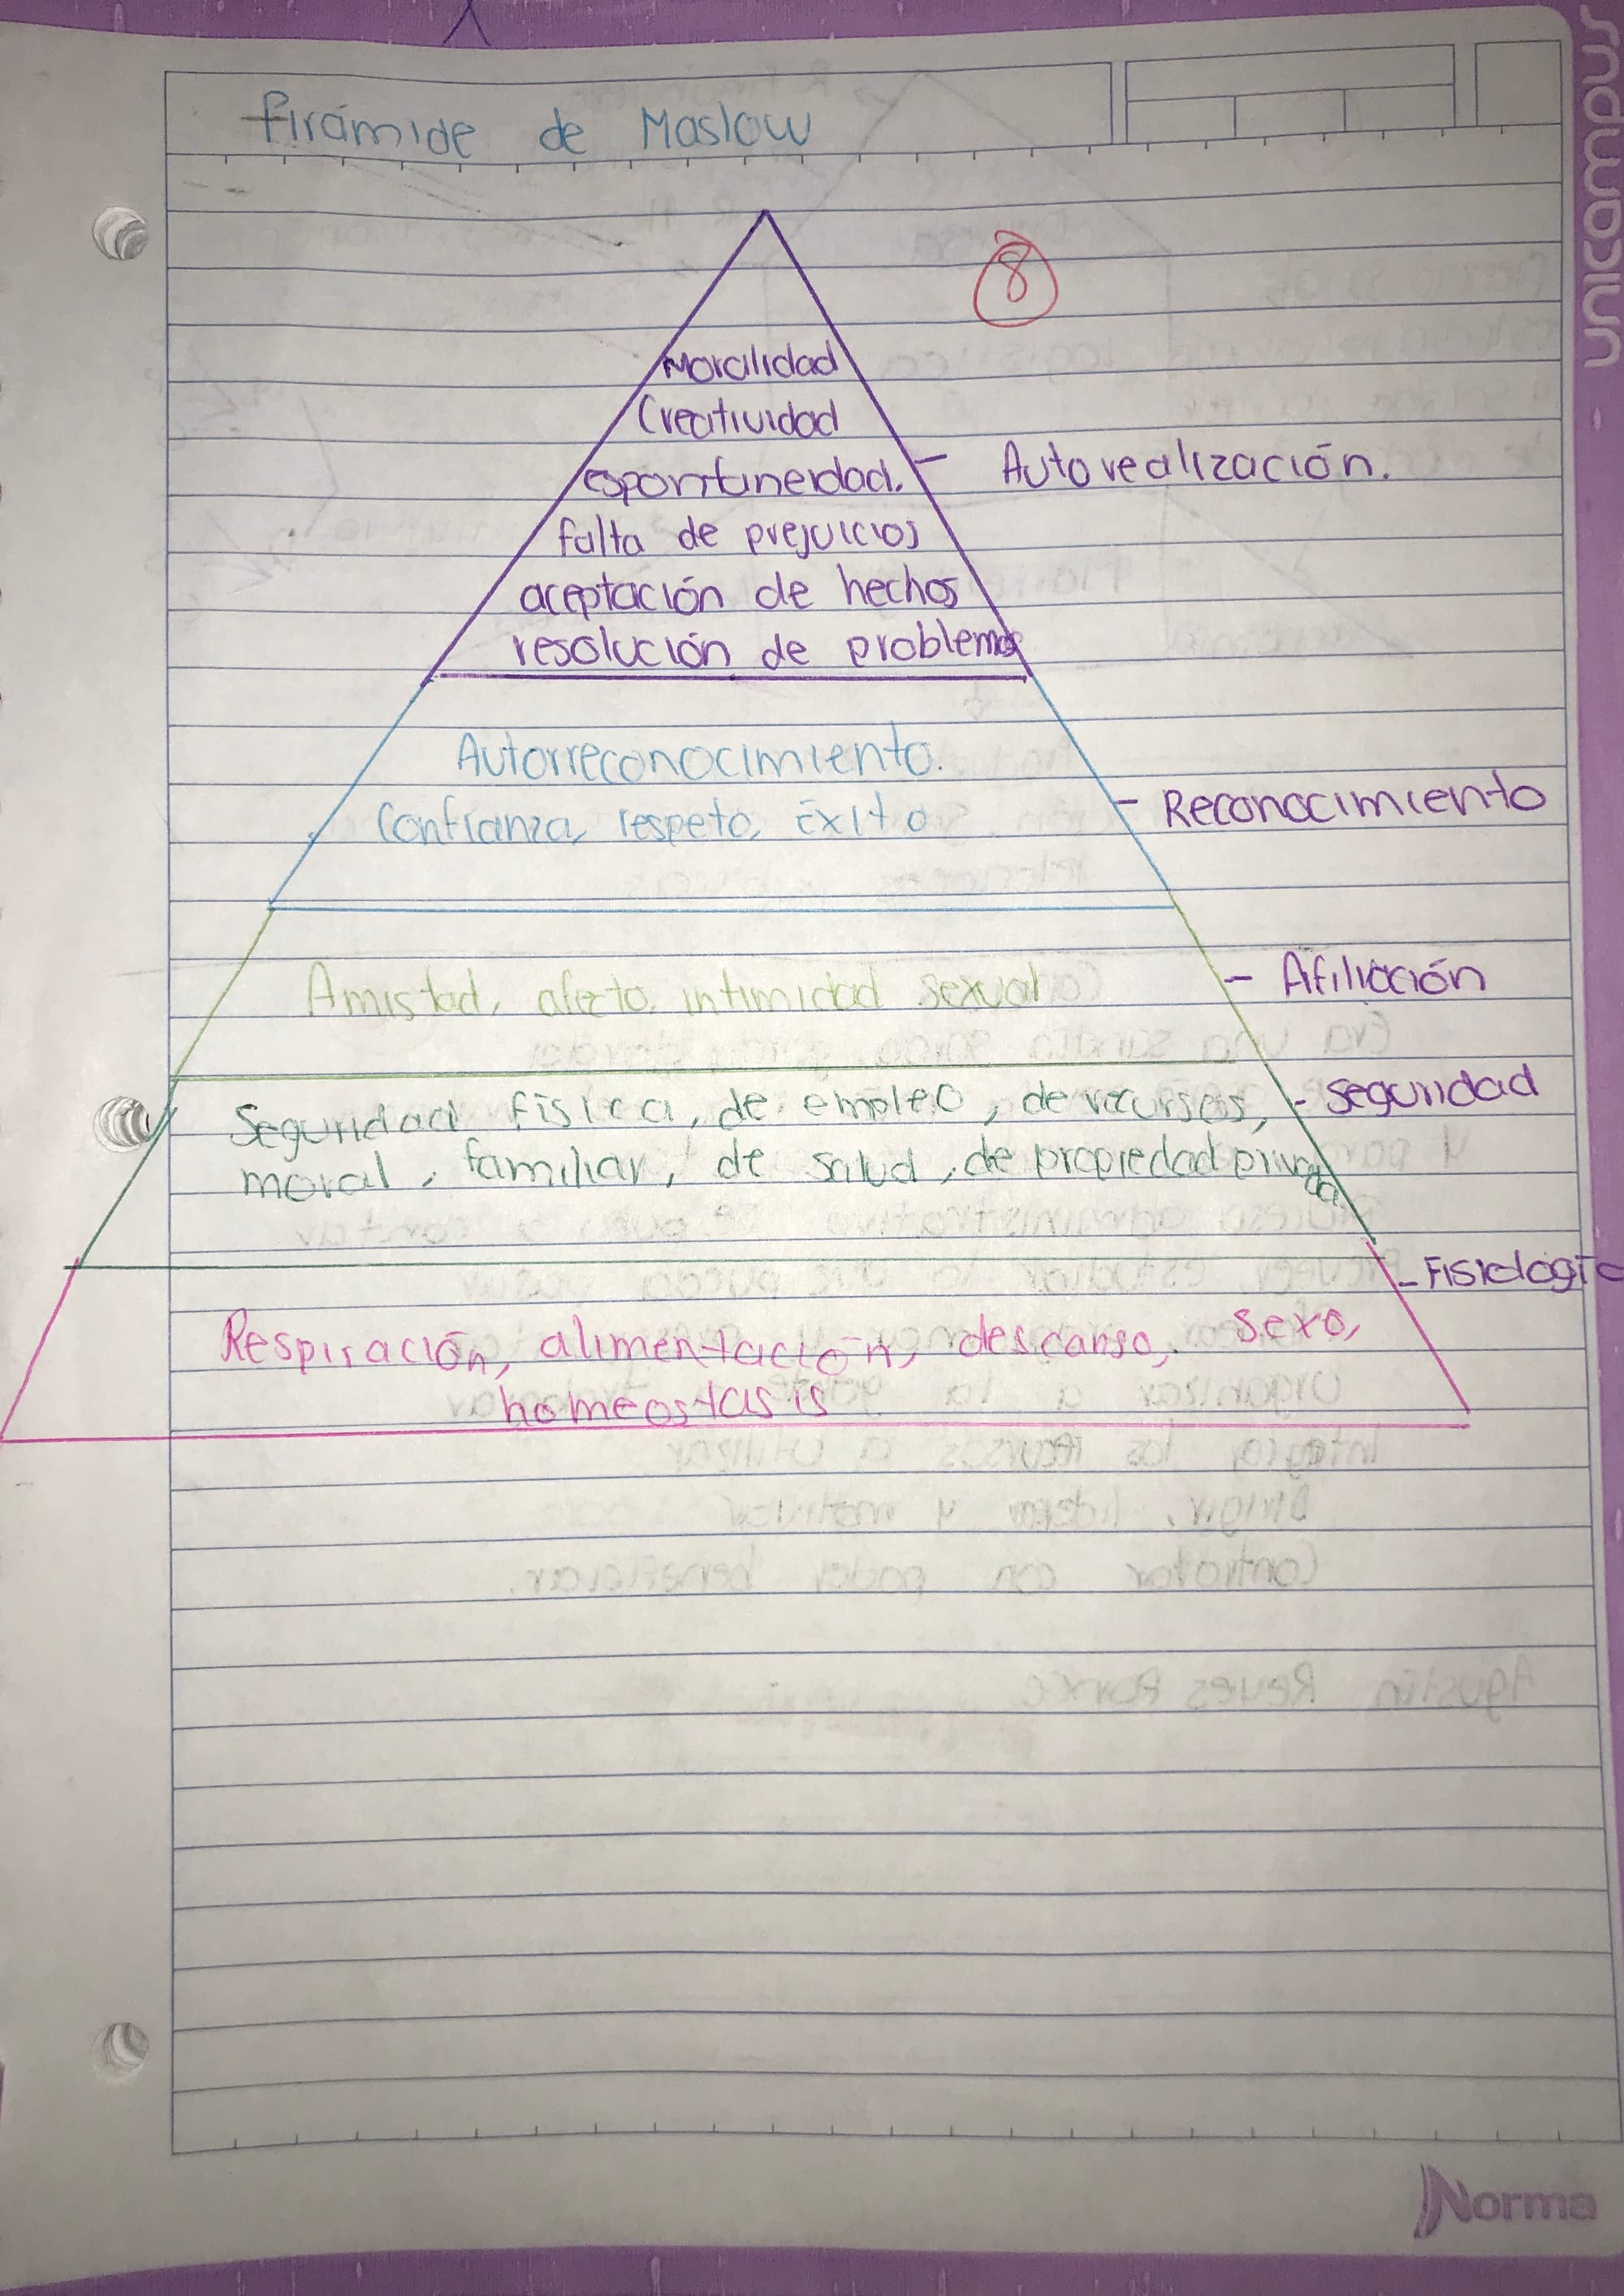 Pirámide de Maslow
8
Moralidad
Creatividad
espontaneidad. - Autorealización.
falta de prejuicios
aceptación de hechos
resolución de problemas
Autorreconocimiento.
Confianza, respeto, Éxito - Reconocimiento
Amistad, afecto, intimidad sexual - Afiliación
Seguridad física, de empleo, de recursos, - seguridad
moral, familiar, de salud, de propiedad privada
- Fisiologíc
Respiración, alimentación, descanso, sexo,
homeostasis
unicampus
Norma